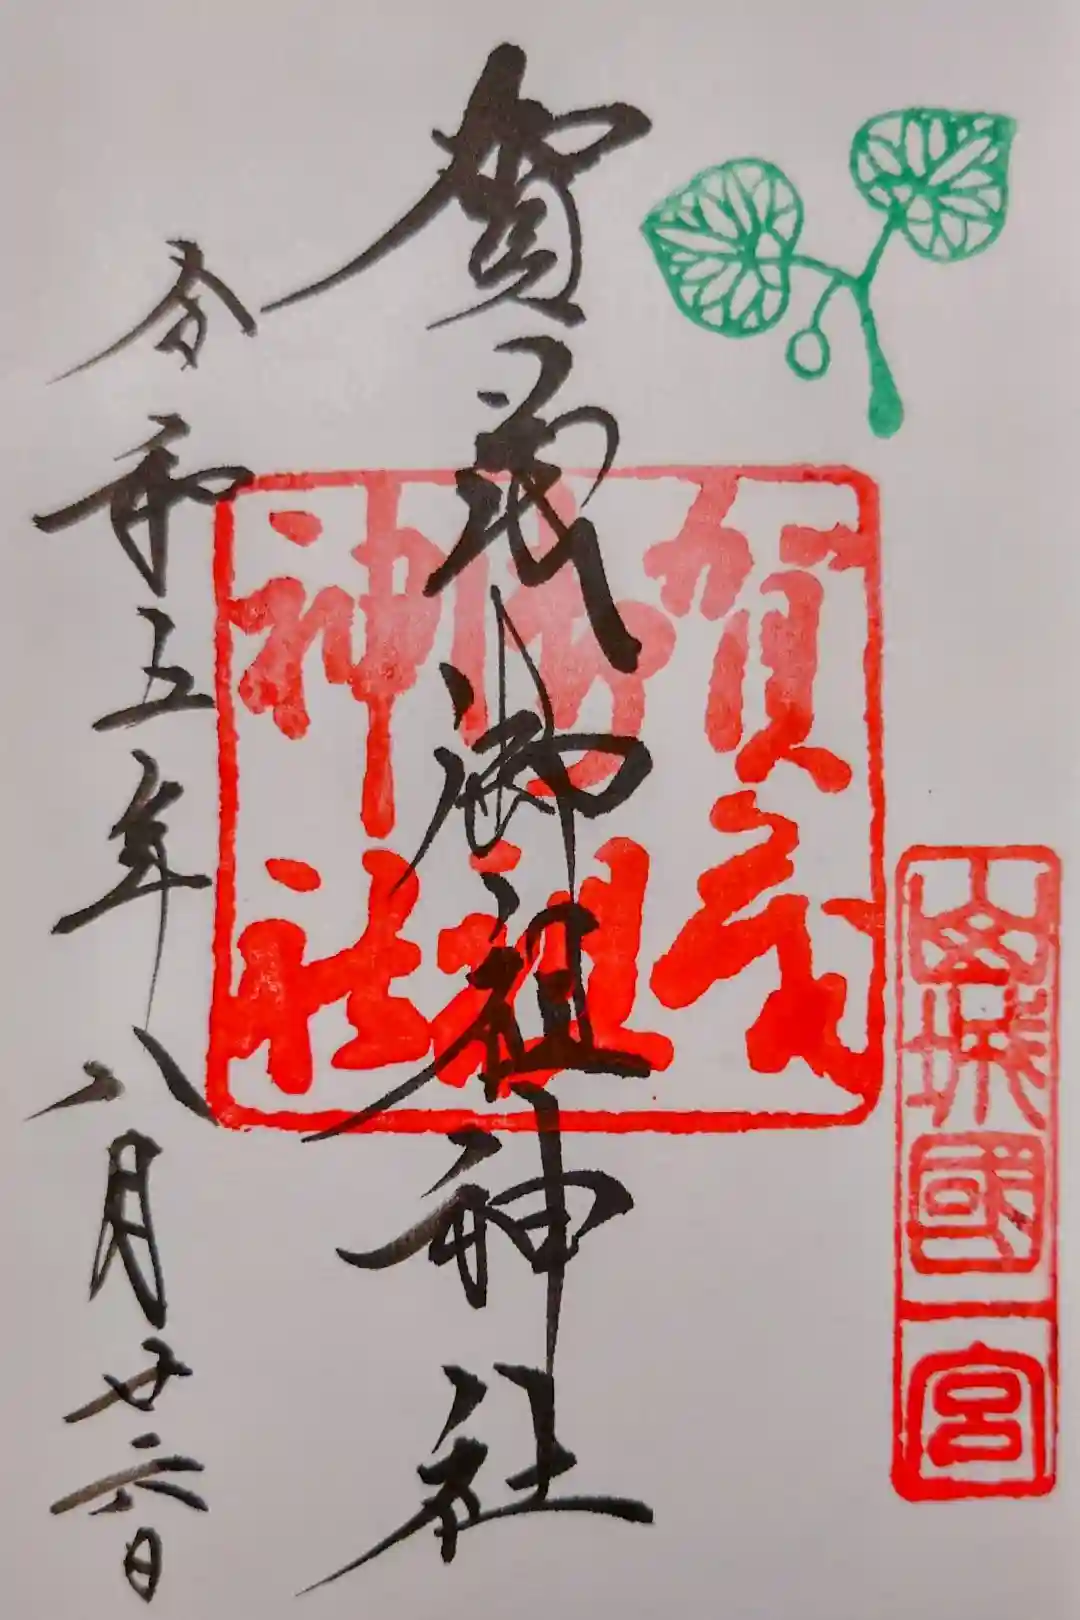 山城國一宮
賀茂御祖神社
賀茂
御祖
神社
令和五年八月廿六日